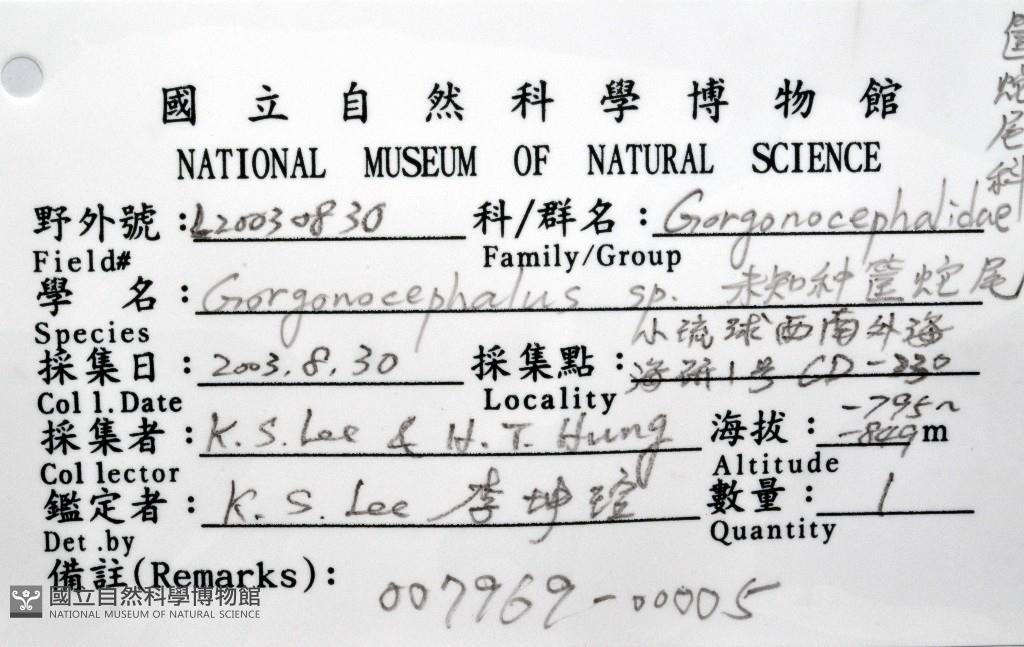 國立自然科學博物館
NATIONAL MUSEUM OF NATURAL SCIENCE
筐蛇尾科
野外號:L20030830 科/群名:Gorgonocephalidae
Field# Family/Group
學 名:Gorgonocephalus sp. 未知种筐蛇尾
Species
小琉球西南外海
採集日:2003.8.30 採集點:海研1号 CD-230
Coll.Date Locality
採集者:K.S.Lee & H.T.Hung 海拔:-795~-849m
Collector Altitude
鑑定者:K.S.Lee 李坤瑄 數量:1
Det.by Quantity
備註(Remarks):
007969-00005
國立自然科學博物館
NATIONAL MUSEUM OF NATURAL SCIENCE